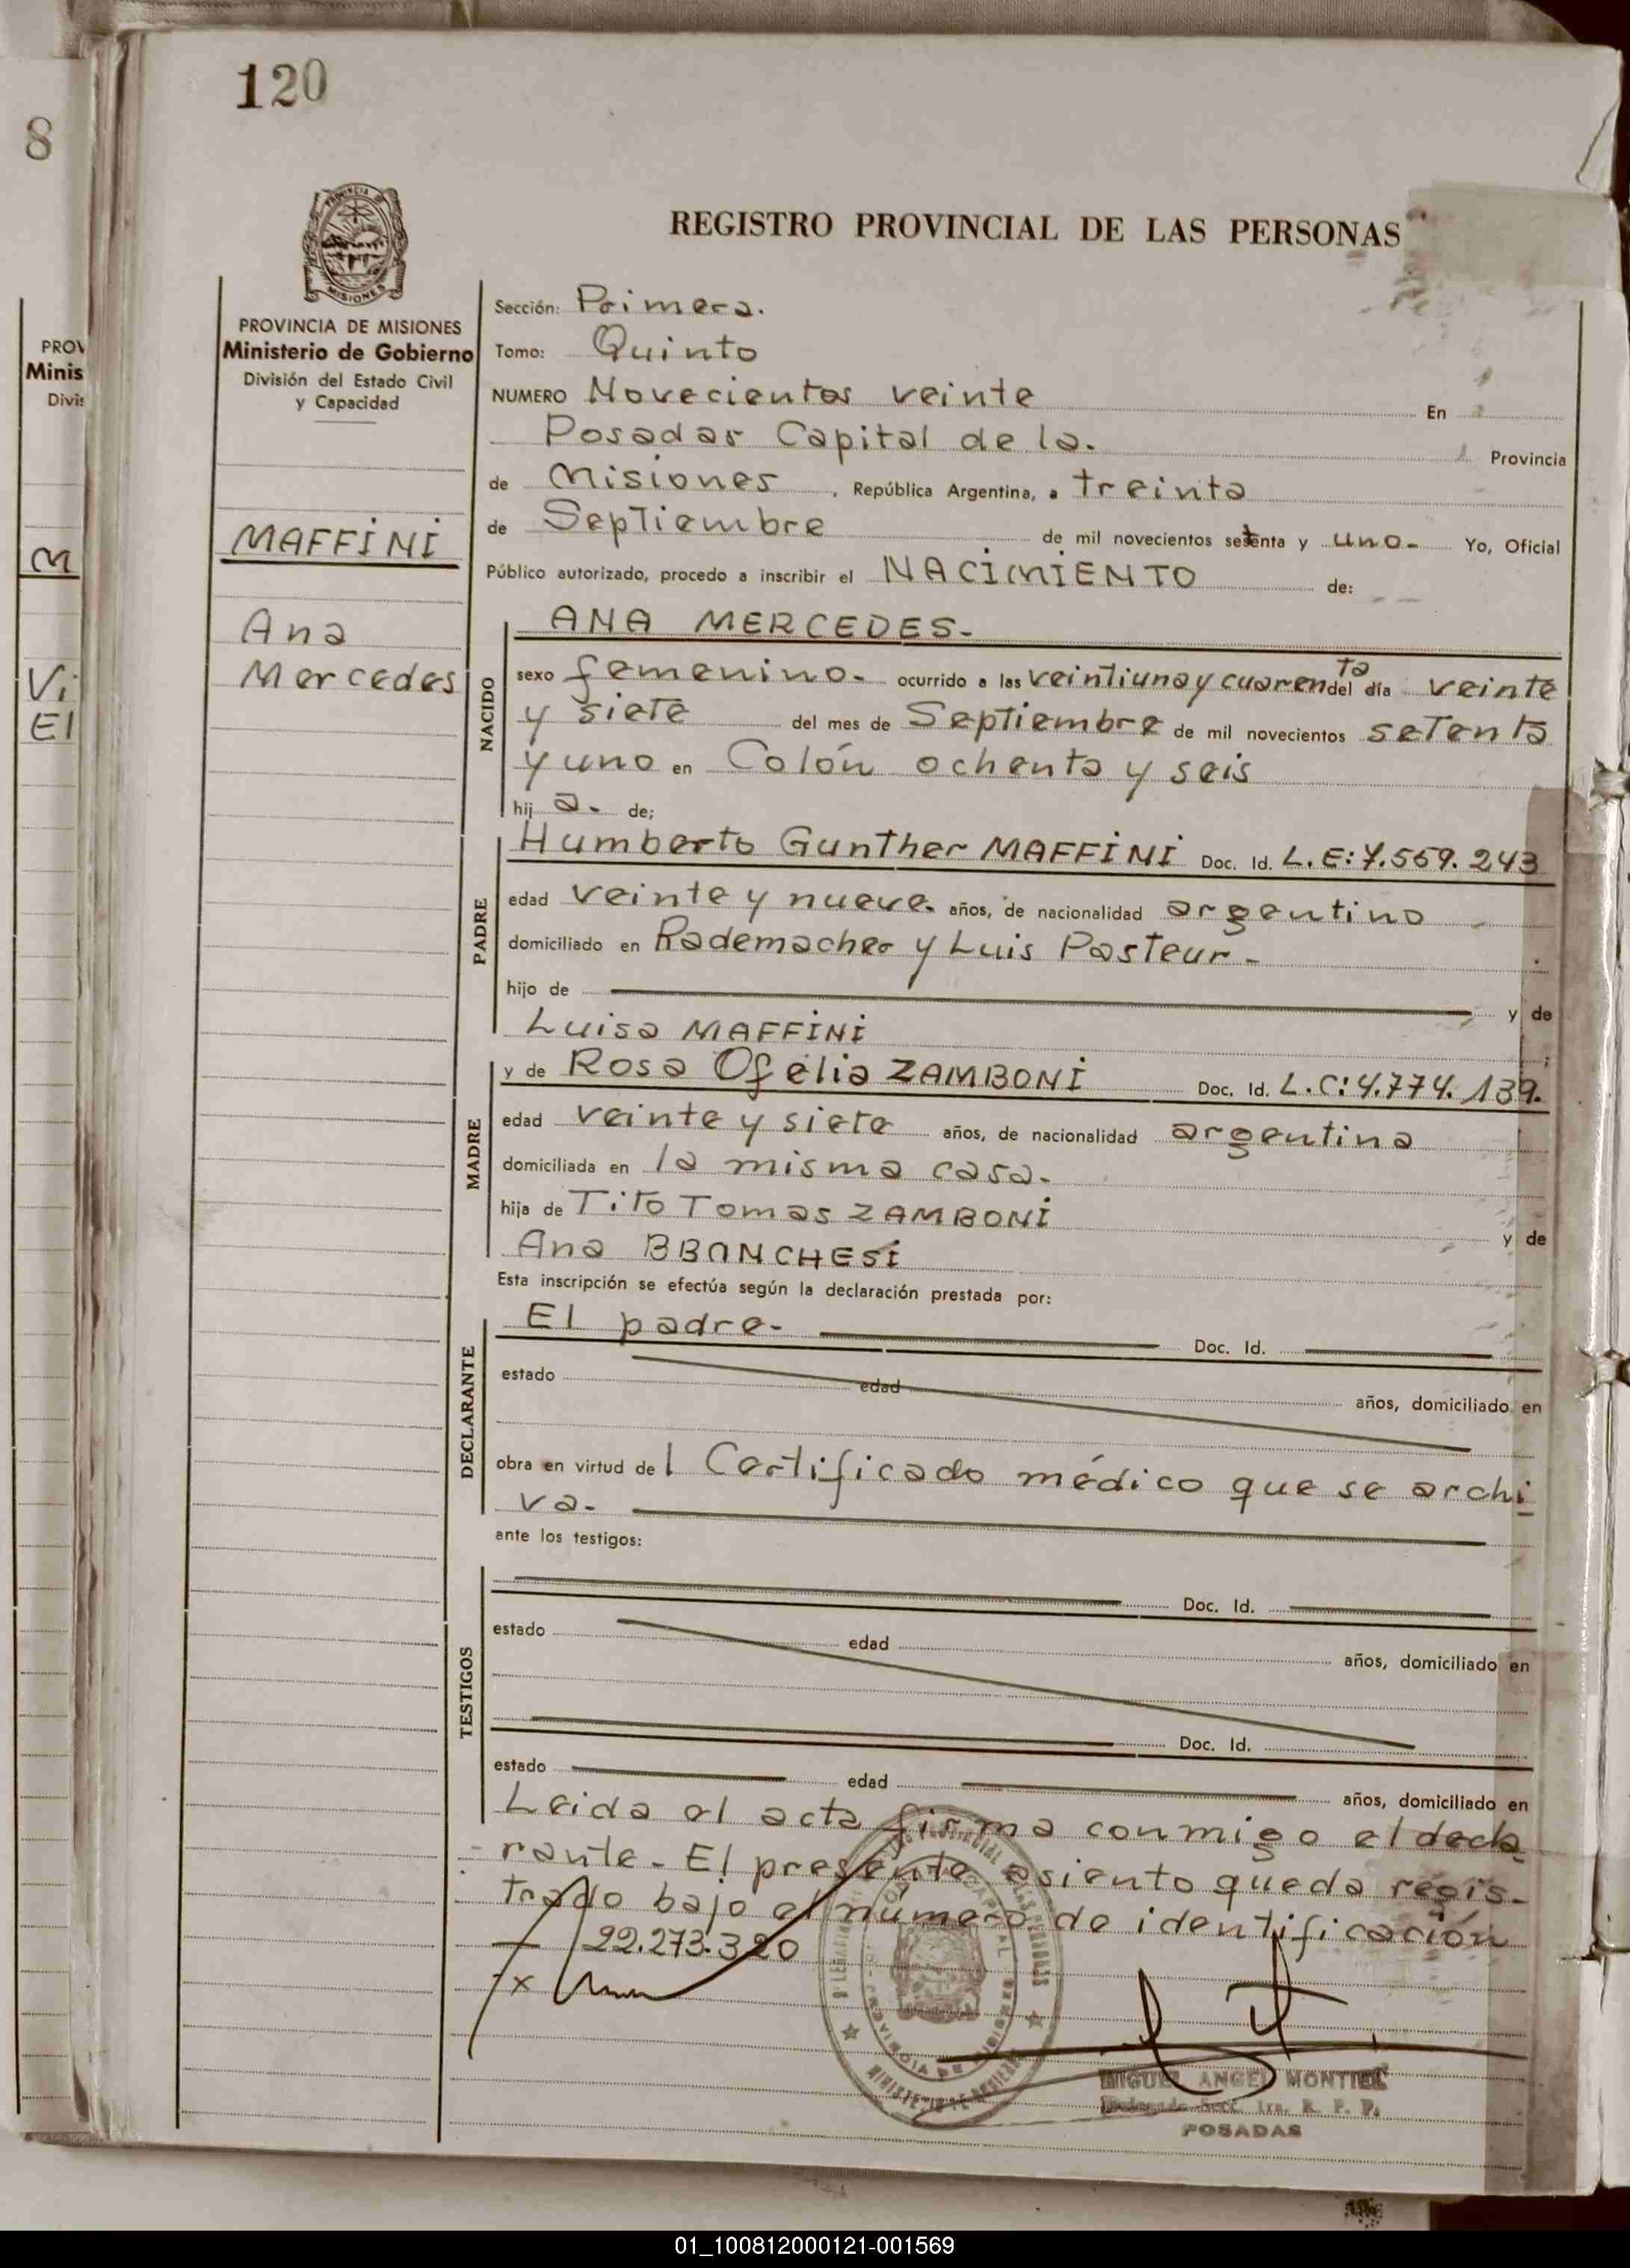 120
8
REGISTRO PROVINCIAL DE LAS PERSONAS
PROVINCIA DE MISIONES
Ministerio de Gobierno
División del Estado Civil
y Capacidad
MAFFINI
Ana
Mercedes
PROV
Minis
Divis
M
Vi
El
Sección: Primera.
Tomo: Quinto
NUMERO Novecientos veinte En
Posadas Capital de la. Provincia
de Misiones, República Argentina, a treinta
de Septiembre de mil novecientos setenta y uno- Yo, Oficial
Público autorizado, procedo a inscribir el NACIMIENTO de:
ANA MERCEDES-
NACIDO
sexo femenino- ocurrido a las veintiuna y cuarenta del día veinte
y siete del mes de Septiembre de mil novecientos setenta
y uno en Colón ochenta y seis
hij a- de;
PADRE
Humberto Gunther MAFFINI Doc. Id. L.E: 7.559.243
edad veinte y nueve- años, de nacionalidad argentino
domiciliado en Rademacher y Luis Pasteur-
hijo de y de
Luisa MAFFINI
MADRE
y de Rosa Ofelia ZAMBONI Doc. Id. L.C: 4.774.139.
edad veinte y siete años, de nacionalidad argentina
domiciliada en la misma casa-
hija de Tito Tomas ZAMBONI y de
Ana BBANCHESI
Esta inscripción se efectúa según la declaración prestada por:
DECLARANTE
El padre- Doc. Id.
estado edad años, domiciliado en
obra en virtud del Certificado médico que se archi
va-
ante los testigos:
TESTIGOS
Doc. Id.
estado edad años, domiciliado en
Doc. Id.
estado edad años, domiciliado en
Leida el acta firma conmigo el decla
rante- El presente asiento queda regis-
trado bajo el número de identificación
22.273.320
MIGUEL ANGEL MONTIEL
R. P. P.
POSADAS
01_100812000121-001569